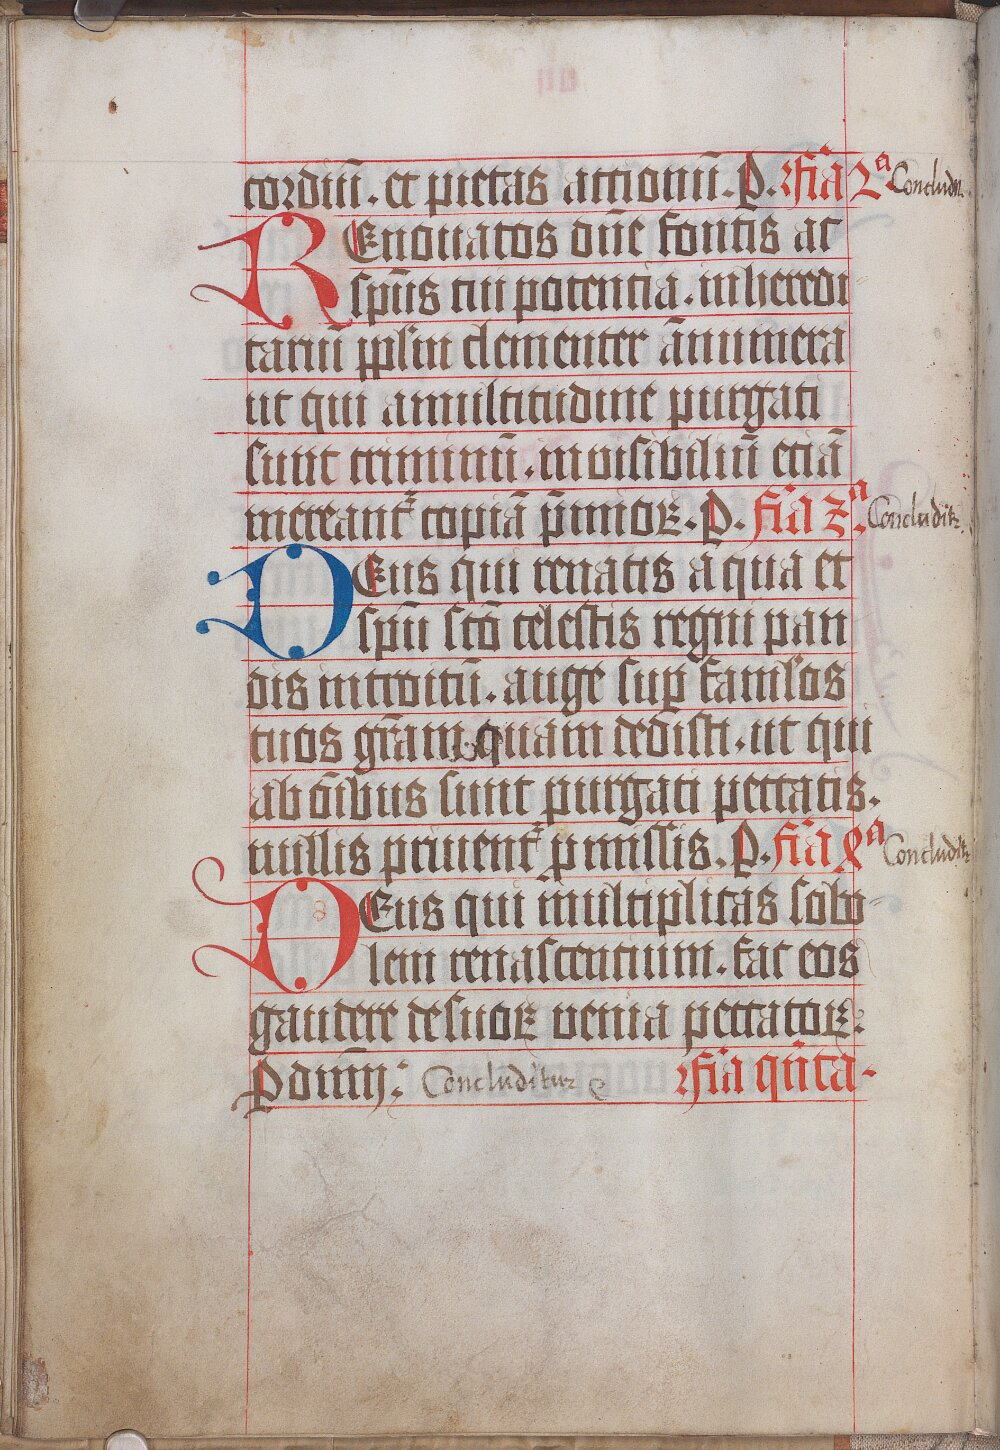 cordiū . et pietas actionū . P . Fīa 2ª Concludit̄
REnouatos dn̄e fontis ac
sp̄us tui potentia . in heredi
tatiū ip̄si᷒ clementer ānumera
ut qui a multitudine purgati
sunt criminū . invisibiliū etiā
mereant̄ copiā p̄mioꝝ . P . fīa 3ª Concludit̄
DEus qui renatis a qua et
spū sctō celestis regni pan
dis introitū . auge sup̱ famlōs
tuos gr̄am quam dedisti . ut qui
ab oībus sunt purgati peccatis .
nullis priuent̄ p̱missis . P . fīa 4ª Concludit̄
DEus qui multiplicas sobo-
lem renascentium . fac eos
gaudere de suoꝝ venia peccatoꝝ .
P dn̄m : Concluditur fīa qn̄ta .